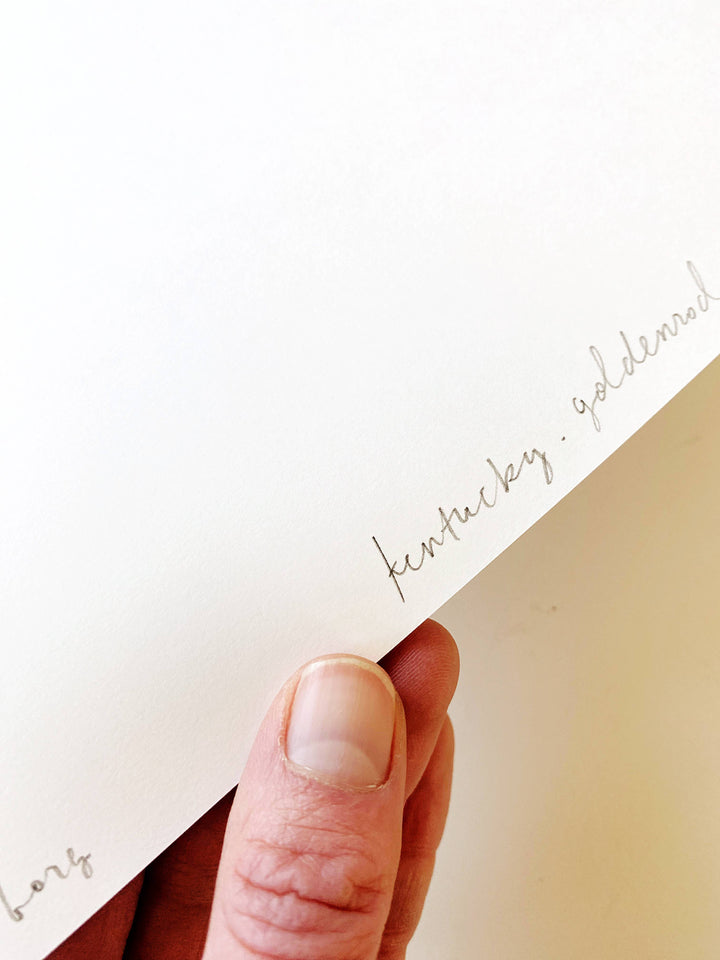 kentucky . goldenrod